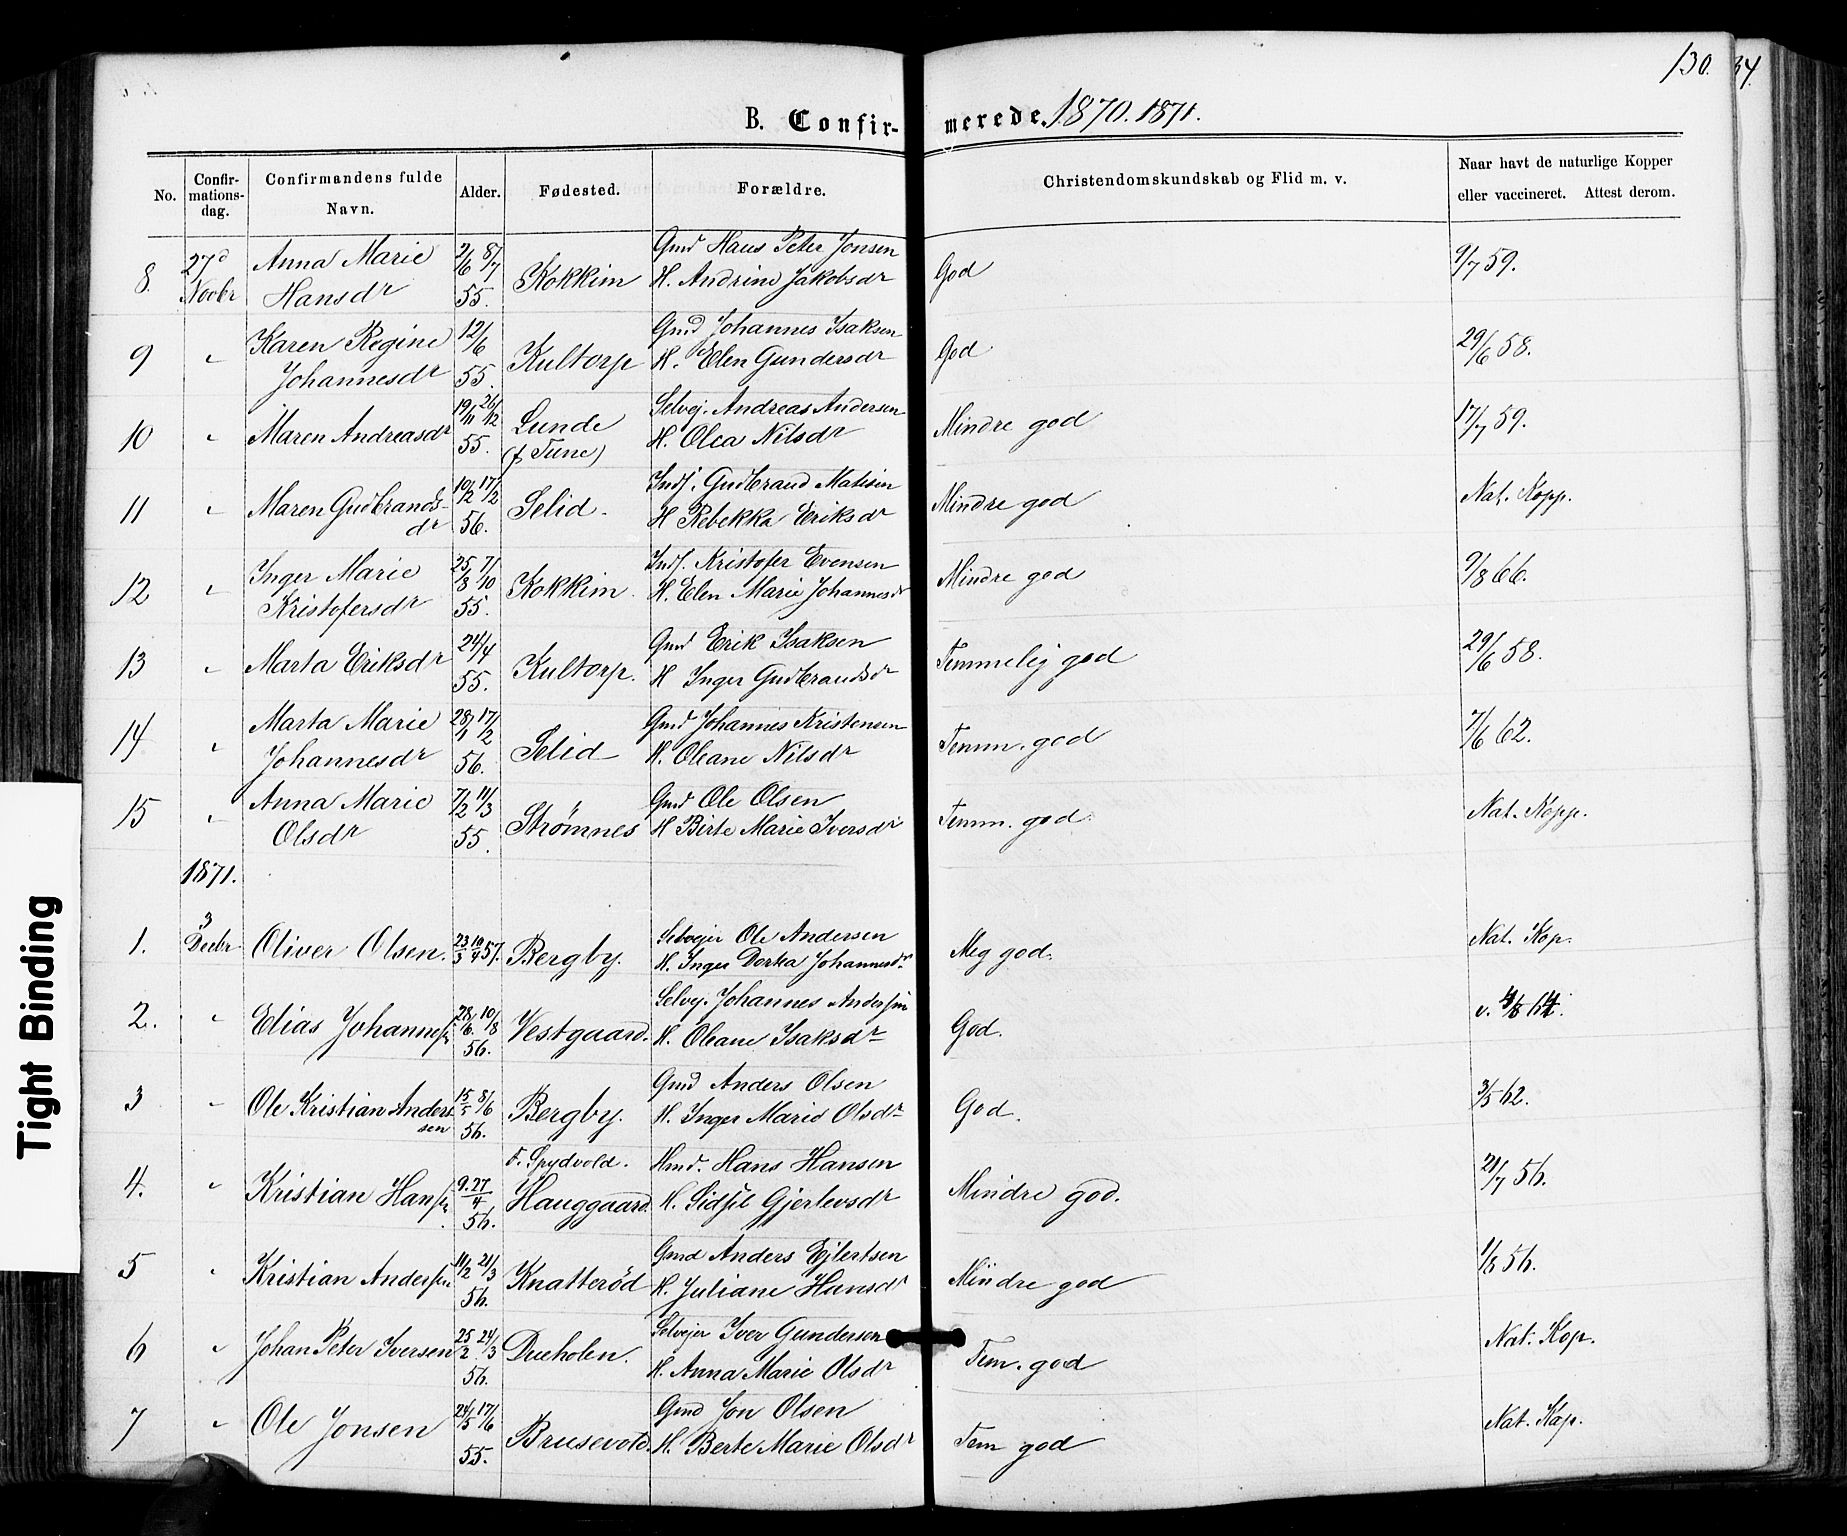 130.
34.
B. Confir- merede. 1870. 1871.
No. Confir-mations-dag. Confirmandens fulde Navn. Alder. Fødested. Forældre. Christendomskundskab og Flid m. v. Naar havt de naturlige Kopper eller vaccineret. Attest derom.
8. 27d Novbr Anna Marie Hansdr 2/6 8/7 55. Kokkim Gmd Hans Peter Jonsen H. Andrine Jakobsdr God 9/7 59.
9 " Karen Regine Johannesdr 12/6 55. Kultorp Gmd Johannes Isaksen H. Elen Gundersdr God 29/6 58.
10 " Maren Andreasdr 19/11 26/12 55. Lunde (f Tune) Selvej. Andreas Andersen H. Olea Nilsdr Mindre god 17/7 59.
11 " Maren Gudbrandsdr 10/2 17/2 56. Selid. Inds. Gudbrand Matisen H Rebekka Eriksdr Mindre god Nat. Kopp.
12 " Inger Marie Kristofersdr 25/8 7/10 55. Kokkim. Inds. Kristofer Evensen H. Elen Marie Johannesdr Mindre god 9/8 66.
13 " Marta Eriksdr 24/4 55. Kultorp. Gmd Erik Isaksen H Inger Gudbrandsdr Temmelig god 29/6 58.
14 " Marta Marie Johannesdr 28/1 17/2 56. Selid Gmd Johannes Kristensen H. Oleane Nilsdr Temm. god 7/6 62.
15 " Anna Marie Olsdr 7/2 11/3 55. Strømnes Gmd Ole Olsen H Birte Marie Iversdr Temm. god Nat. Kopp.
1871.
1. 3 Decbr Oliver Olsen. 23/3 19/4 57. Bergby. Selvejer Ole Andersen H. Inger Dorka Johannesdr Meg god. Nat. Kop.
2. " Elias Johannesn 28/6 10/8 56. Vestgaard. Selvej. Johannes Andersen H. Oleane Isaksdr God. v. 4/8 64.
3 " Ole Kristian Andersen 15/5 8/6 56. Bergby. Gmd Anders Olsen H. Inger Marie Olsdr God. 3/5 62.
4. " Kristian Hansn 9. 27/4 56. F. Spydvold. Hauggaard. Hmd. Hans Hansen H. Sidsel Gjertevsdr Mindre god. 21/7 56.
5 " Kristian Andersen 11/2 21/3 56. Knatterød Gmd Anders Ejlertsen H. Juliane Hansdr Mindre god 1/8 56.
6 " Johan Peter Iversen 25/2 24/3 56. Dueholen. Selvejer Iver Gundersen H. Anna Marie Olsdr Tem. god Nat. Kop.
7 " Ole Jonsen 24/5 17/6 55. Brusevold. Gmd Jon Olsen H. Berte Marie Olsdr Tem god Nat. Kop.
Tight Binding